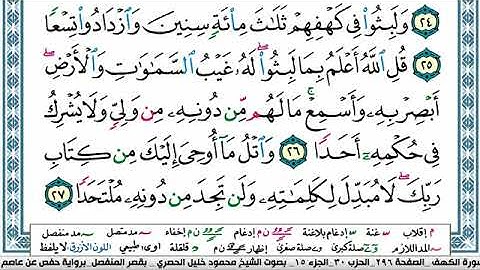 ٢٤ وَلَبِثُوا۟ فِى كَهْفِهِمْ ثَلَٰثَ مِا۟ئَةٍ سِنِينَ وَٱزْدَادُوا۟ تِسْعًا
٢٥ قُلِ ٱللَّهُ أَعْلَمُ بِمَا لَبِثُوا۟ ۖ لَهُۥ غَيْبُ ٱلسَّمَٰوَٰتِ وَٱلْأَرْضِ ۖ
أَبْصِرْ بِهِۦ وَأَسْمِعْ ۚ مَا لَهُم مِّن دُونِهِۦ مِن وَلِىٍّ وَلَا يُشْرِكُ
فِى حُكْمِهِۦٓ أَحَدًا ٢٦ وَٱتْلُ مَآ أُوحِىَ إِلَيْكَ مِن كِتَابِ
رَبِّكَ ۖ لَا مُبَدِّلَ لِكَلِمَٰتِهِۦ وَلَن تَجِدَ مِن دُونِهِۦ مُلْتَحَدًا ٢٧
م إقلاب غنة إدغام بلاغنة ن م إدغام ن م إخفاء مد متصل مد منفصل
المد اللازم صلة كبرى وصلة صغرى إظهار ن م قلقلة اوى، طبيعي اللون الأزرق لا يلفظ
سورة الكهف _ الصفحة ٢٩٦ _ الحزب ٣٠ _ الجزء ١٥ _ بصوت الشيخ محمود خليل الحصري _ بقصر المنفصل _ برواية حفص عن عاصم